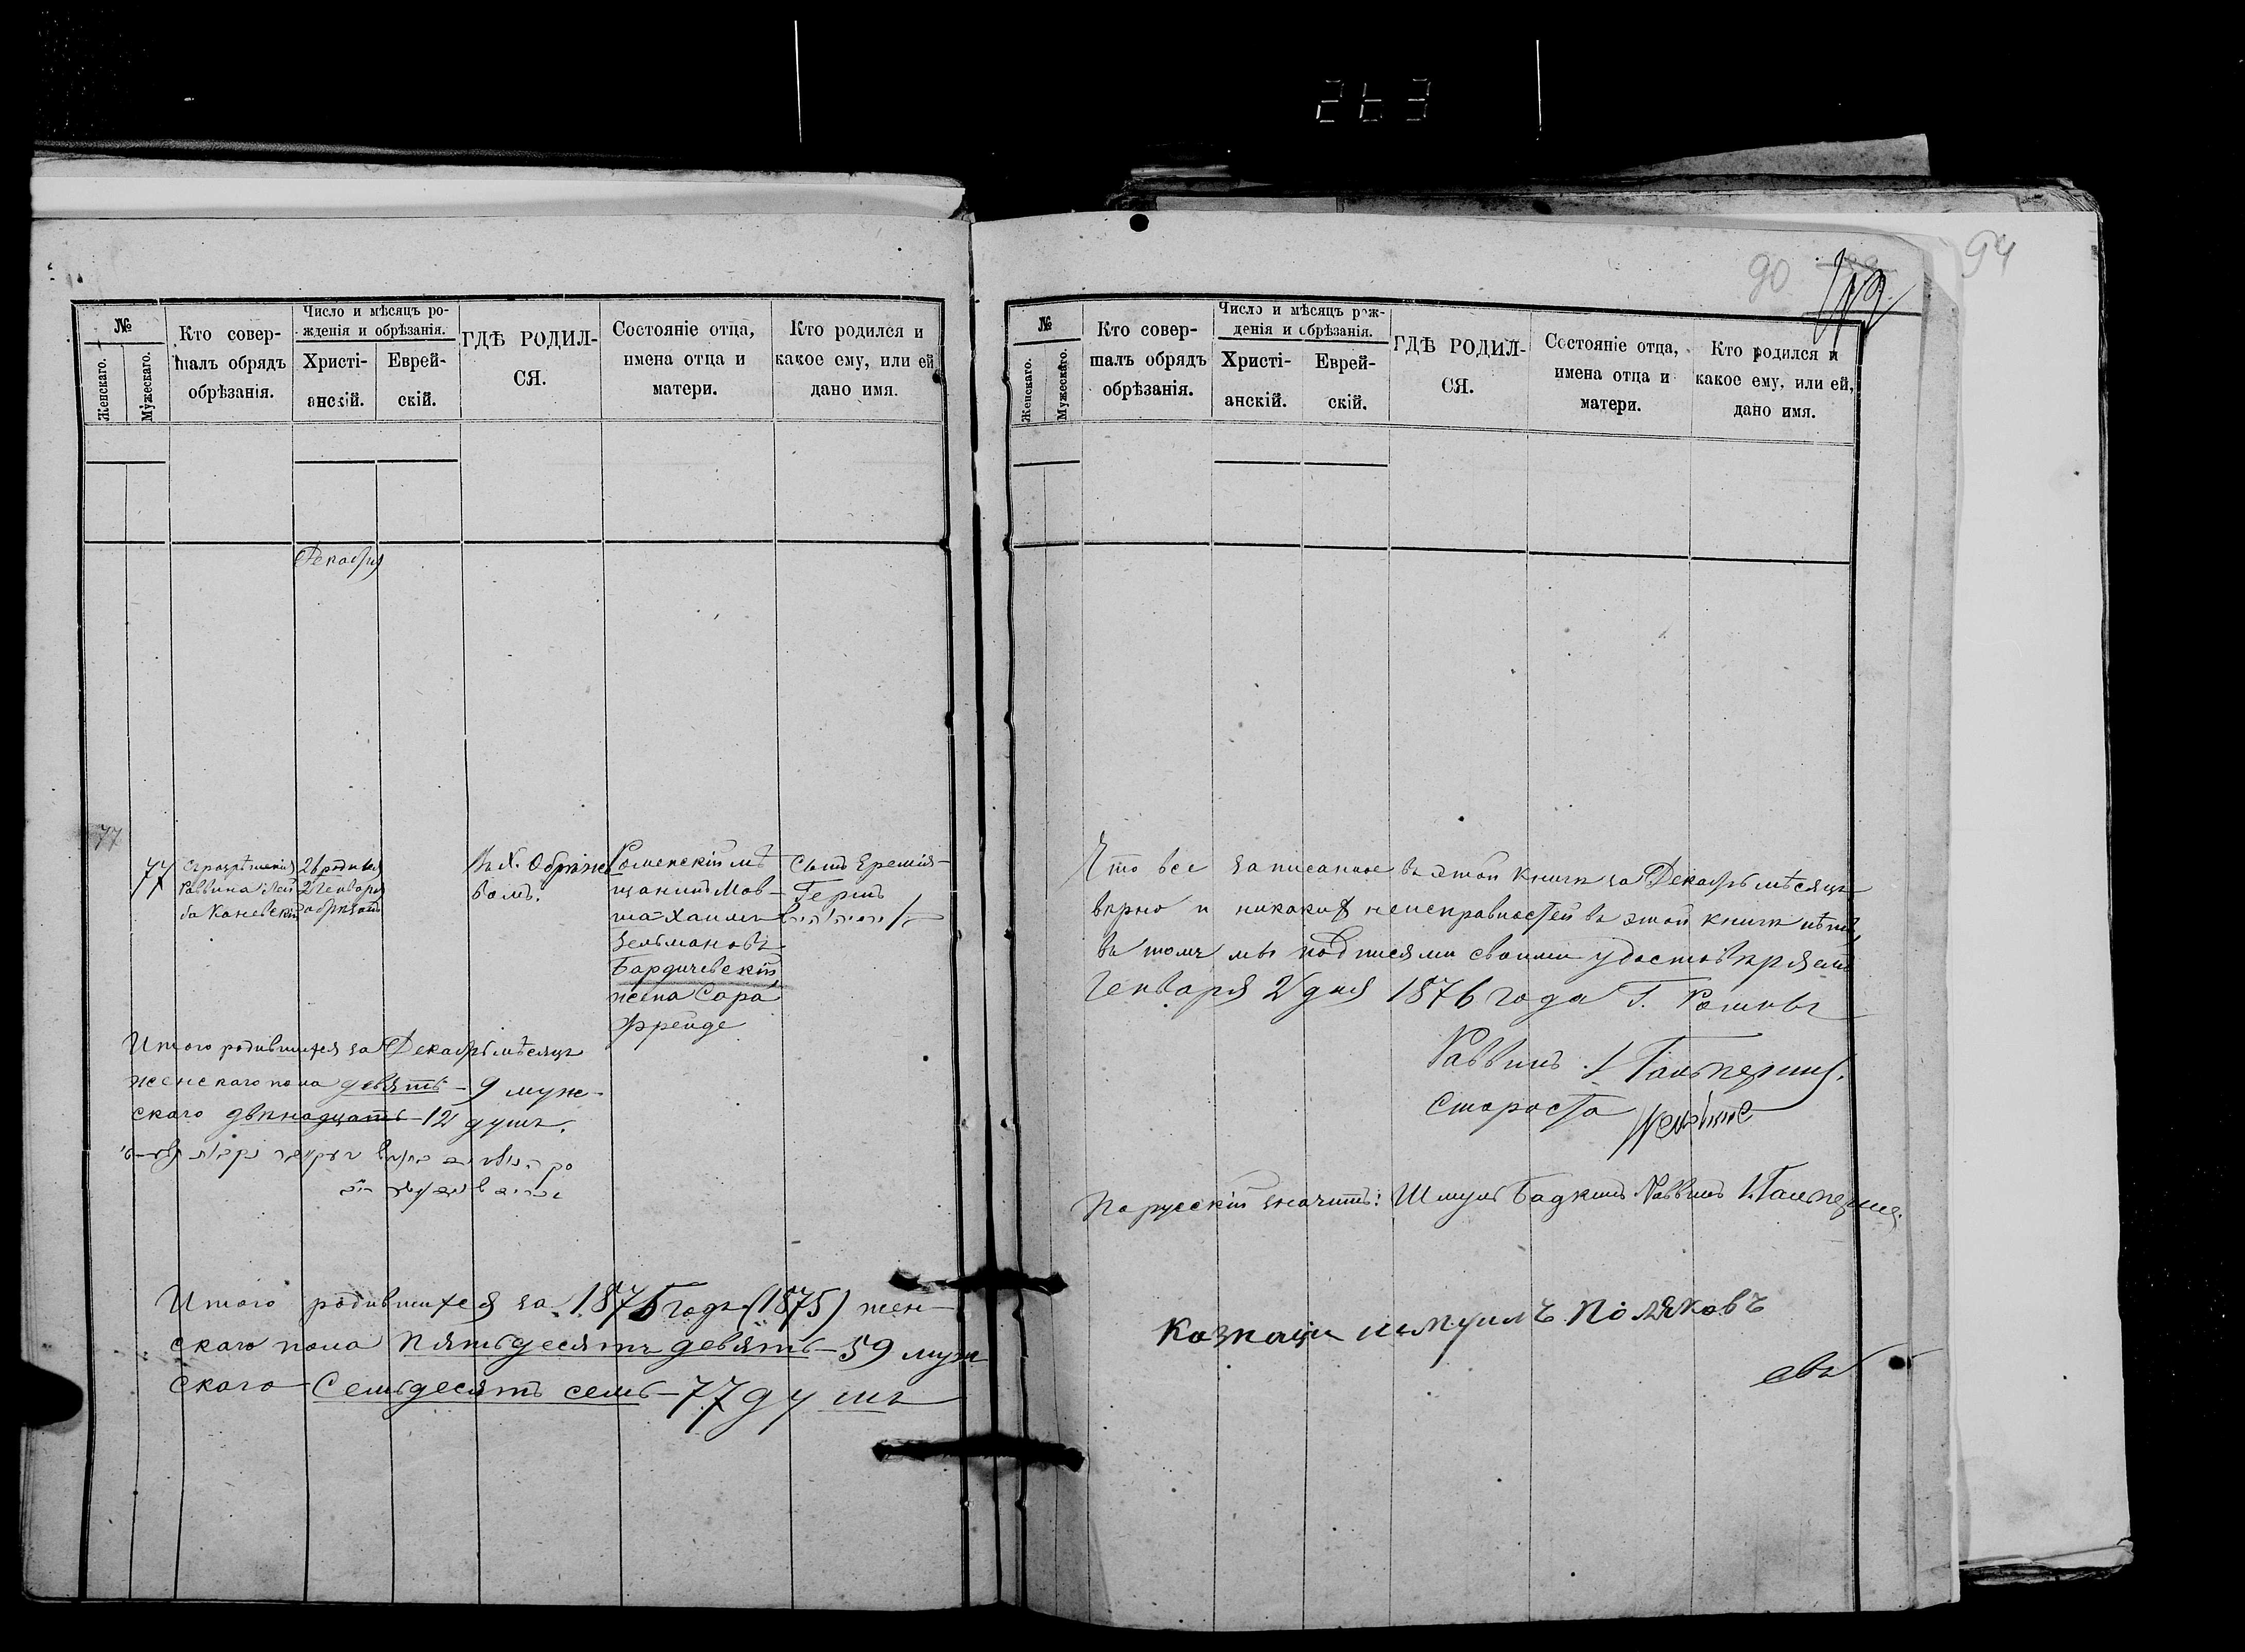 263
90
94
№
Женскаго.
Мужескаго.
Кто совер-
шалъ обрядъ
обрѣзанія.
Число и мѣсяцъ ро-
жденія и обрѣзанія.
Христі-
анскій.
Еврей-
скій.
ГДѢ РОДИЛ-
СЯ.
Состояніе отца,
имена отца и
матери.
Кто родился и
какое ему, или ей
дано имя.
Декабря
77
77
Съ разрѣшенія
Раввина Лей
ба Каневскій
26 родился
2 Генваря
обрѣзанъ
Въ Х.
вомъ.
Роменскій мѣ
щанинъ Мов
ша-Хаимъ
Зельмановъ
Бардичевскій
жена Сара
Фрейде
Сынъ Еремія-
Гершъ
Итого родившихся за Декабрь мѣсяцъ
женскаго пола девять - 9 муж-
скаго двѣнадцать - 12 душъ.
Итого родившихся за 1875 годъ (1875) жен-
скаго пола пятьдесятъ девять - 59 муж
скаго Семьдесятъ семь - 77 душъ
№
Женскаго.
Мужескаго.
Кто совер-
шалъ обрядъ
обрѣзанія.
Число и мѣсяцъ рож-
денія и обрѣзанія.
Христі-
анскій.
Еврей-
скій.
ГДѢ РОДИЛ-
СЯ.
Состояніе отца,
имена отца и
матери.
Кто родился и
какое ему, или ей,
дано имя.
Что все записанное въ этой книгѣ за Декабрь мѣсяцъ
вѣрно и никакихъ неисправностей въ этой книгѣ нѣтъ,
въ томъ мы подписями своими удостовѣряемъ
Генваря 2 дня 1876 года Г. Ромны
Раввинъ Гальперинъ.
Староста
По русскій значитъ: Шмуль Бадкинъ Раввинъ Гальперинъ.
Казначи Поляковъ